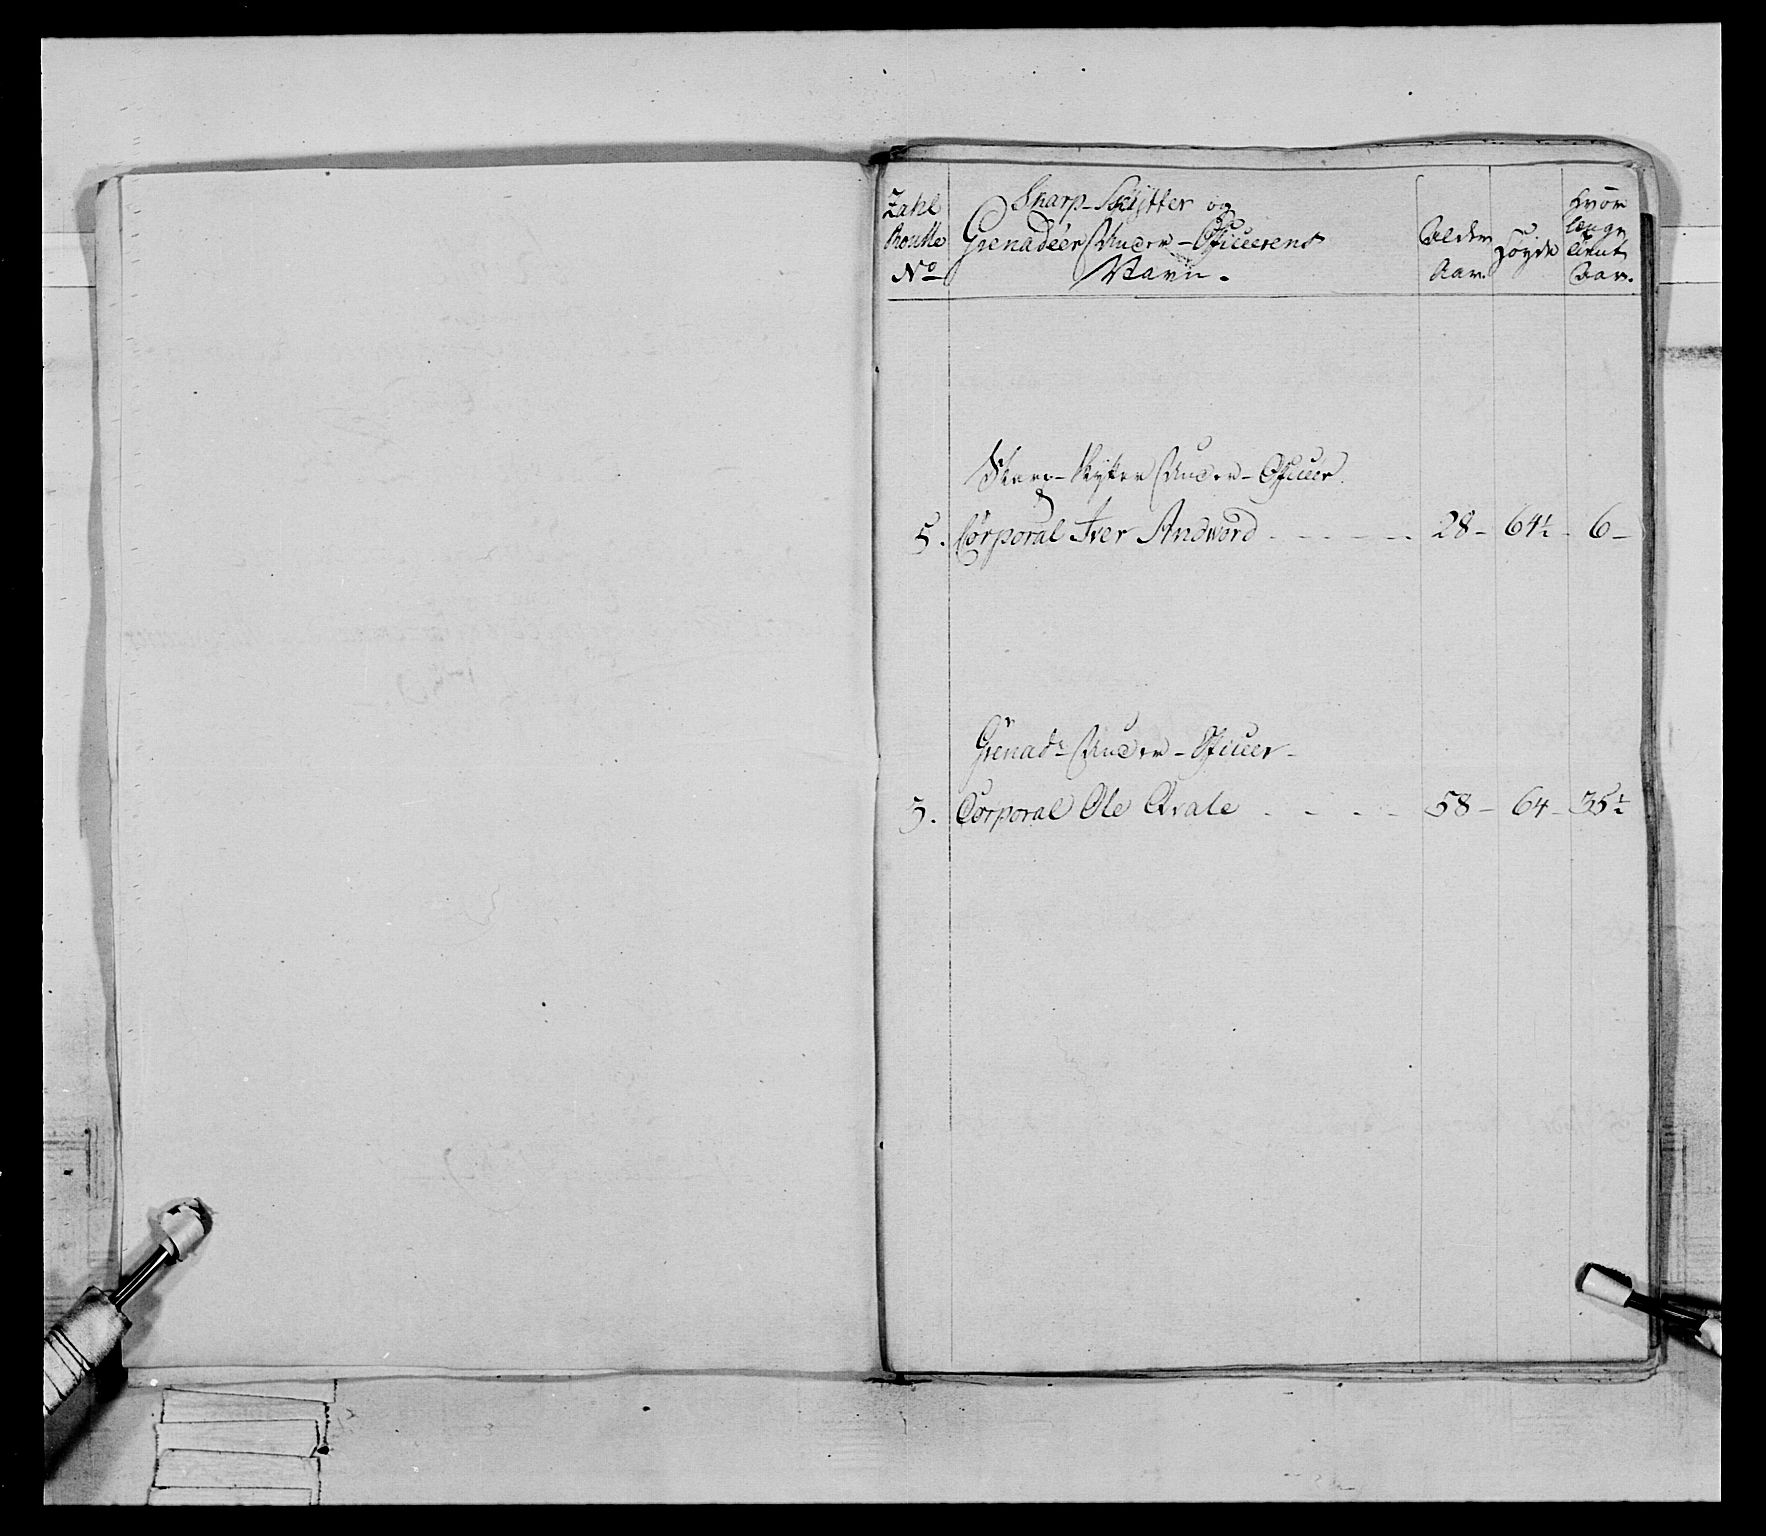 Zahl Roulle No
Skarp-Skÿtter og
Grenadéer Under-Officeerens
Navn.
Alder Aar.
Høyde
hvor længe tient Aar.
Skarp-Skÿtter Under-Officeer
5. Corporal Iver Andvord - - - - 28 - 64½ - 6 -
Grenadr Under-Officeer -
3. Corporal Ole Qvale - - - - 58 - 64 - 35½